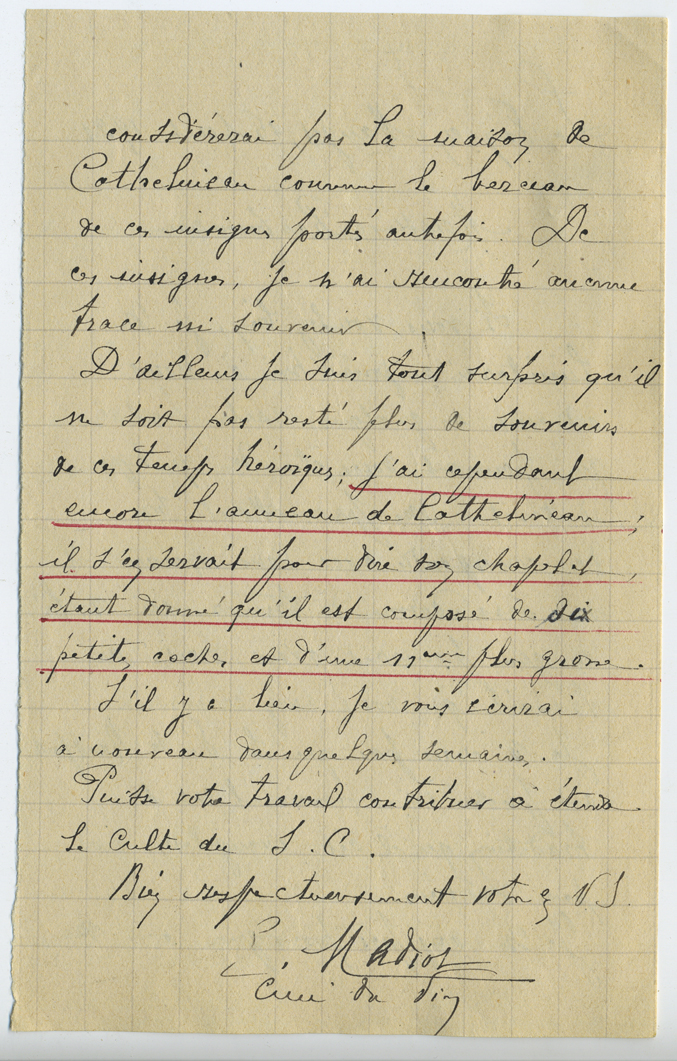 considérerai pas la maison de
Cathelineau comme le berceau
de ces insignes portés autrefois. De
ces insignes, je n'ai rencontré aucune
trace ni souvenir
D'ailleurs je suis tout surpris qu'il
ne soit pas resté plus de souvenirs
de ces temps héroïques; j'ai cependant
encore l'anneau de Cathelineau;
il s'en servait pour dire son chapelet,
étant donné qu'il est composé de dix
petites coches et d'une 11ème plus grosse.
S'il y a lieu, je vous écrirai
à nouveau dans quelques semaines.
Puisse votre travail contribuer à étendre
le culte du S.C.
Bien respectueusement votre en N S.
Madiot
Curé du Pin